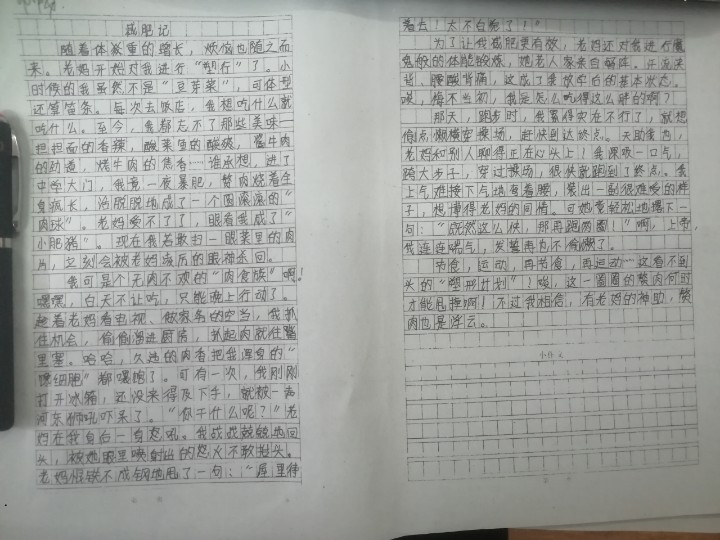 减肥记
随着体重的增长，烦恼也随之而
来。老妈开始对我进行“塑行”了。小
时候的我虽然不是“豆芽菜”，可体型
还算苗条。每次去饭店，我想吃什么就
吃什么。至今，我都忘不了那些美味—
担担面的香辣，酸菜鱼的酸爽，酱牛肉
的劲道，烤牛肉的焦香…谁承想，进了
中学大门，我竟一夜暴肥，赘肉绕着全
身疯长，活脱脱地成了一个圆滚滚的“
肉球”。老妈受不了了，眼看我成了“
小肥猪”。现在我若敢扫一眼菜里的肉
片，立刻会被老妈凌厉的眼神杀回。
我可是个无肉不欢的“肉食族”啊！
嘿嘿，白天不让吃，只能晚上行动了。
趁着老妈看电视、做家务的空当，我抓
住机会，偷偷溜进厨房，扒起肉就往嘴
里塞。哈哈，久违的肉香把我浑身的“
馋细胞”都喂饱了。可有一次，我刚刚
打开冰箱，还没来得及下手，就被一声
河东狮吼吓呆了。“你干什么呢？”老
妈在我身后一声怒吼。我战战兢兢地回
头，被她眼里喷射出的怒火不敢抬头。
老妈恨铁不成钢地甩了一句：“屋里待
着去！太不自觉了！”
为了让我减肥更有效，老妈还对我进行魔
鬼般的体能锻炼，她老人家亲自督阵。汗流浃
背、腰酸背痛，这成了我放学后的基本状态。
唉，悔不当初，我是怎么吃得这么胖的啊？
那天，跑步时，我累得实在不行了，就想
偷点懒横穿操场，赶快到达终点。天助我也，
老妈和别人聊得正在心头上！我深吸一口气，
跨大步子，穿过操场，很快就跑到了终点。我
上气难接下气地弯着腰，装出一副很难受的样
子，想博得老妈的同情。可她竟轻松地撂下一
句：“既然这么快，那再跑两圈！”啊，上帝，
我连连喘气，发誓再也不偷懒了。
节食，运动，再节食，再运动…这看不到
头的“塑形计划”！唉，这一圈圈的赘肉何时
才能甩掉啊！不过我相信，有老妈的神助，赘
肉也是浮云。